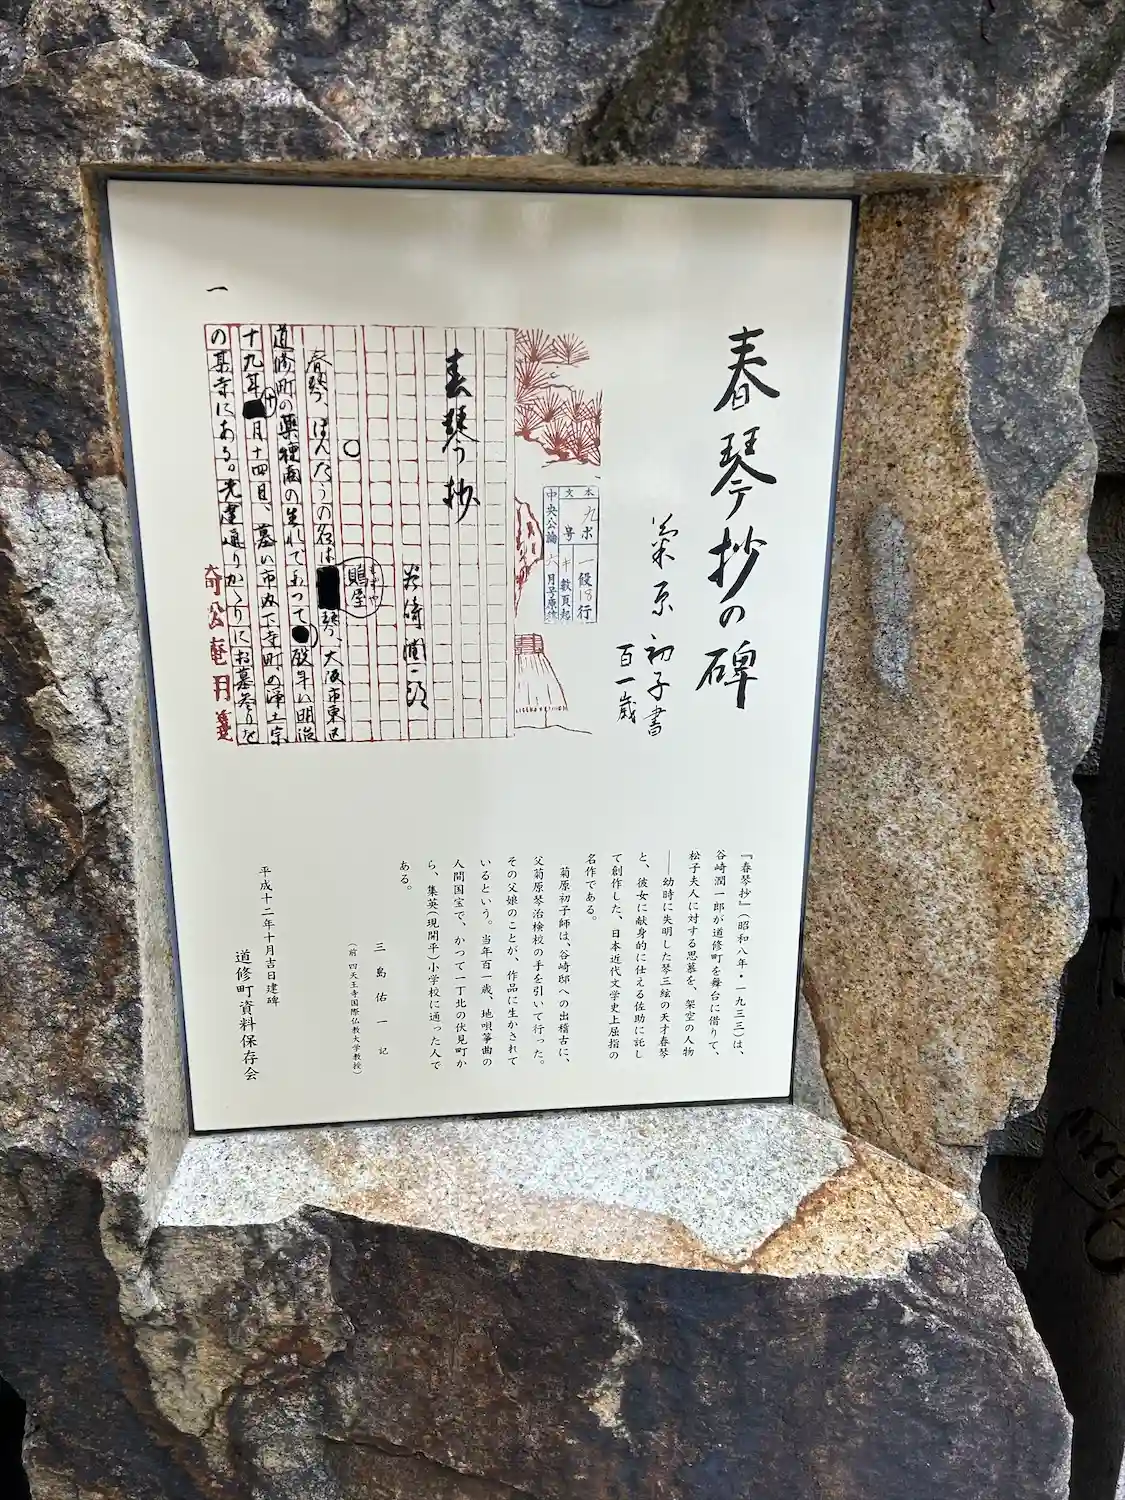 春琴抄の碑
菊原初子書
百一歳
本文 九ポ 一段18行
中央公論 六月号原稿
春琴抄
谷崎潤一郎
鵙屋
春琴、ほんたうの名は
琴、大阪市東区
道修町の薬種商の生れで
歿年は明治
十九年十月十四日、墓は市内下寺町の浄土宗
の某寺にある。先達通りかゝりにお墓参りを
一
『春琴抄』(昭和八年・一九三三)は、
谷崎潤一郎が道修町を舞台に借りて、
松子夫人に対する思慕を、架空の人物
──幼時に失明した琴三絃の天才春琴
と、彼女に献身的に仕える佐助に託し
て創作した、日本近代文学史上屈指の
名作である。
菊原初子師は、谷崎邸への出稽古に、
父菊原琴治検校の手を引いて行った。
その父娘のことが、作品に生かされて
いるという。当年百一歳、地唄箏曲の
人間国宝で、かつて一丁北の伏見町か
ら、集英(現開平)小学校に通った人で
ある。
三島佑一 記
(前 四天王寺国際仏教大学教授)
平成十二年十月吉日建碑
道修町資料保存会